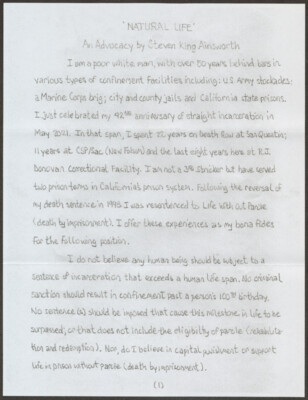 "NATURAL LIFE"
An Advocacy by Steven King Ainsworth
I am a poor white man, with over 50 years behind bars in
various types of confinement facilities including: U.S. Army stockades;
a Marine Corps brig; city and county jails and California state prisons.
I just celebrated my 42nd anniversary of straight incarceration in
May 2021. In that span, I spent 22 years on Death Row at San Quentin;
11 years at CSP/Sac (New Folsom) and the last eight years here at R.J.
Donovan Correctional Facility. I am not a 3rd Striker but have served
two prison terms in California's prison system. Following the reversal of
my death sentence in 1998 I was resentenced to Life With out Parole
(death by imprisonment). I offer these experiences as my bona fides
for the following position.
I do not believe any human being should be subject to a
sentence of incarceration that exceeds a human life span. No criminal
sanction should result in confinement past a person's 100th birthday.
No sentence(s) should be imposed that cause this milestone in life to be
surpassed; or that does not include the eligibility of parole (rehabilita-
tion and redemption). Nor, do I believe in capital punishment or support
life in prison without parole (death by imprisonment).
(1)